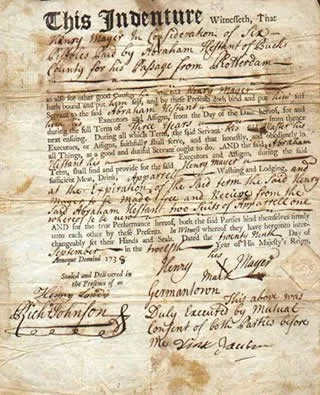 This Indenture Witnesseth, That
Henry Mayer In Consideration of Six
Pistoles Paid by Abraham Hestant of Bucks
County for his Passage from Rotterdam
as also for other Good Henry Mayer
hath bound and put hym self, and by these Presents doth bind and put hym self
Servant to the said Abraham Hestant
Executors and Assigns, from the Day of the Date hereof, for and
during the full Term of Three Years from thence
next ensuing. During all which Term, the said Servant his said Master his
Executors, or Assigns, faithfully shall serve, and that honestly and obediently in
all Things, as a good and dutiful Servant ought to do. AND the said Abraham
Hestant his Executors and Assigns, during the said
Term, shall find and provide for the said Henry Mayer
sufficient Meat, Drink, Apparrel Washing and Lodging, and
at the Expiration of the Said term the said Henry
Mayer to be made free and Receive from the
Said Abraham Hestant two Suits of Apparrell one
whereof is to be new
AND for the true Performance hereof, both the said Parties bind themselves firmly
unto each other by these Presents. In Witness whereof they have hereunto inter-
changeably set their Hands and Seals. Dated the
September in the twelfth Year of His Majesty's Reign,
Annoque Domini 1738
his
Henry Mayer
Mark
Sealed and Delivered in
the Presence of us
Henry
Rich Johnson
Germantown
This above was
Duly Executed by Mutual
Consent of both the Parties before
me